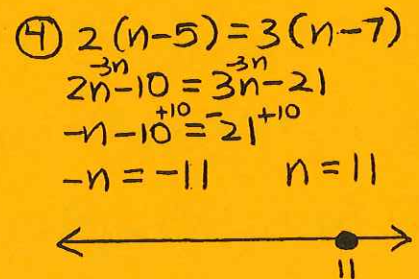 ④ 2(n-5)=3(n-7)
-3n -3n
2n-10=3n-21
+10 +10
-n-10=-21
-n=-11 n=11
11